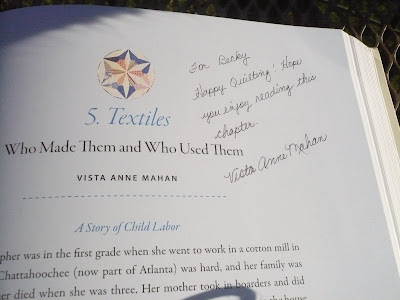 For Becky
Happy Quilting! Hope
you enjoy reading this
chapter.
Vista Anne Mahan
5. Textiles
Who Made Them and Who Used Them
VISTA ANNE MAHAN
A Story of Child Labor
pher was in the first grade when she went to work in a cotton mill in
Chattahoochee (now part of Atlanta) was hard, and her family was
er died when she was three. Her mother took in boarders and did